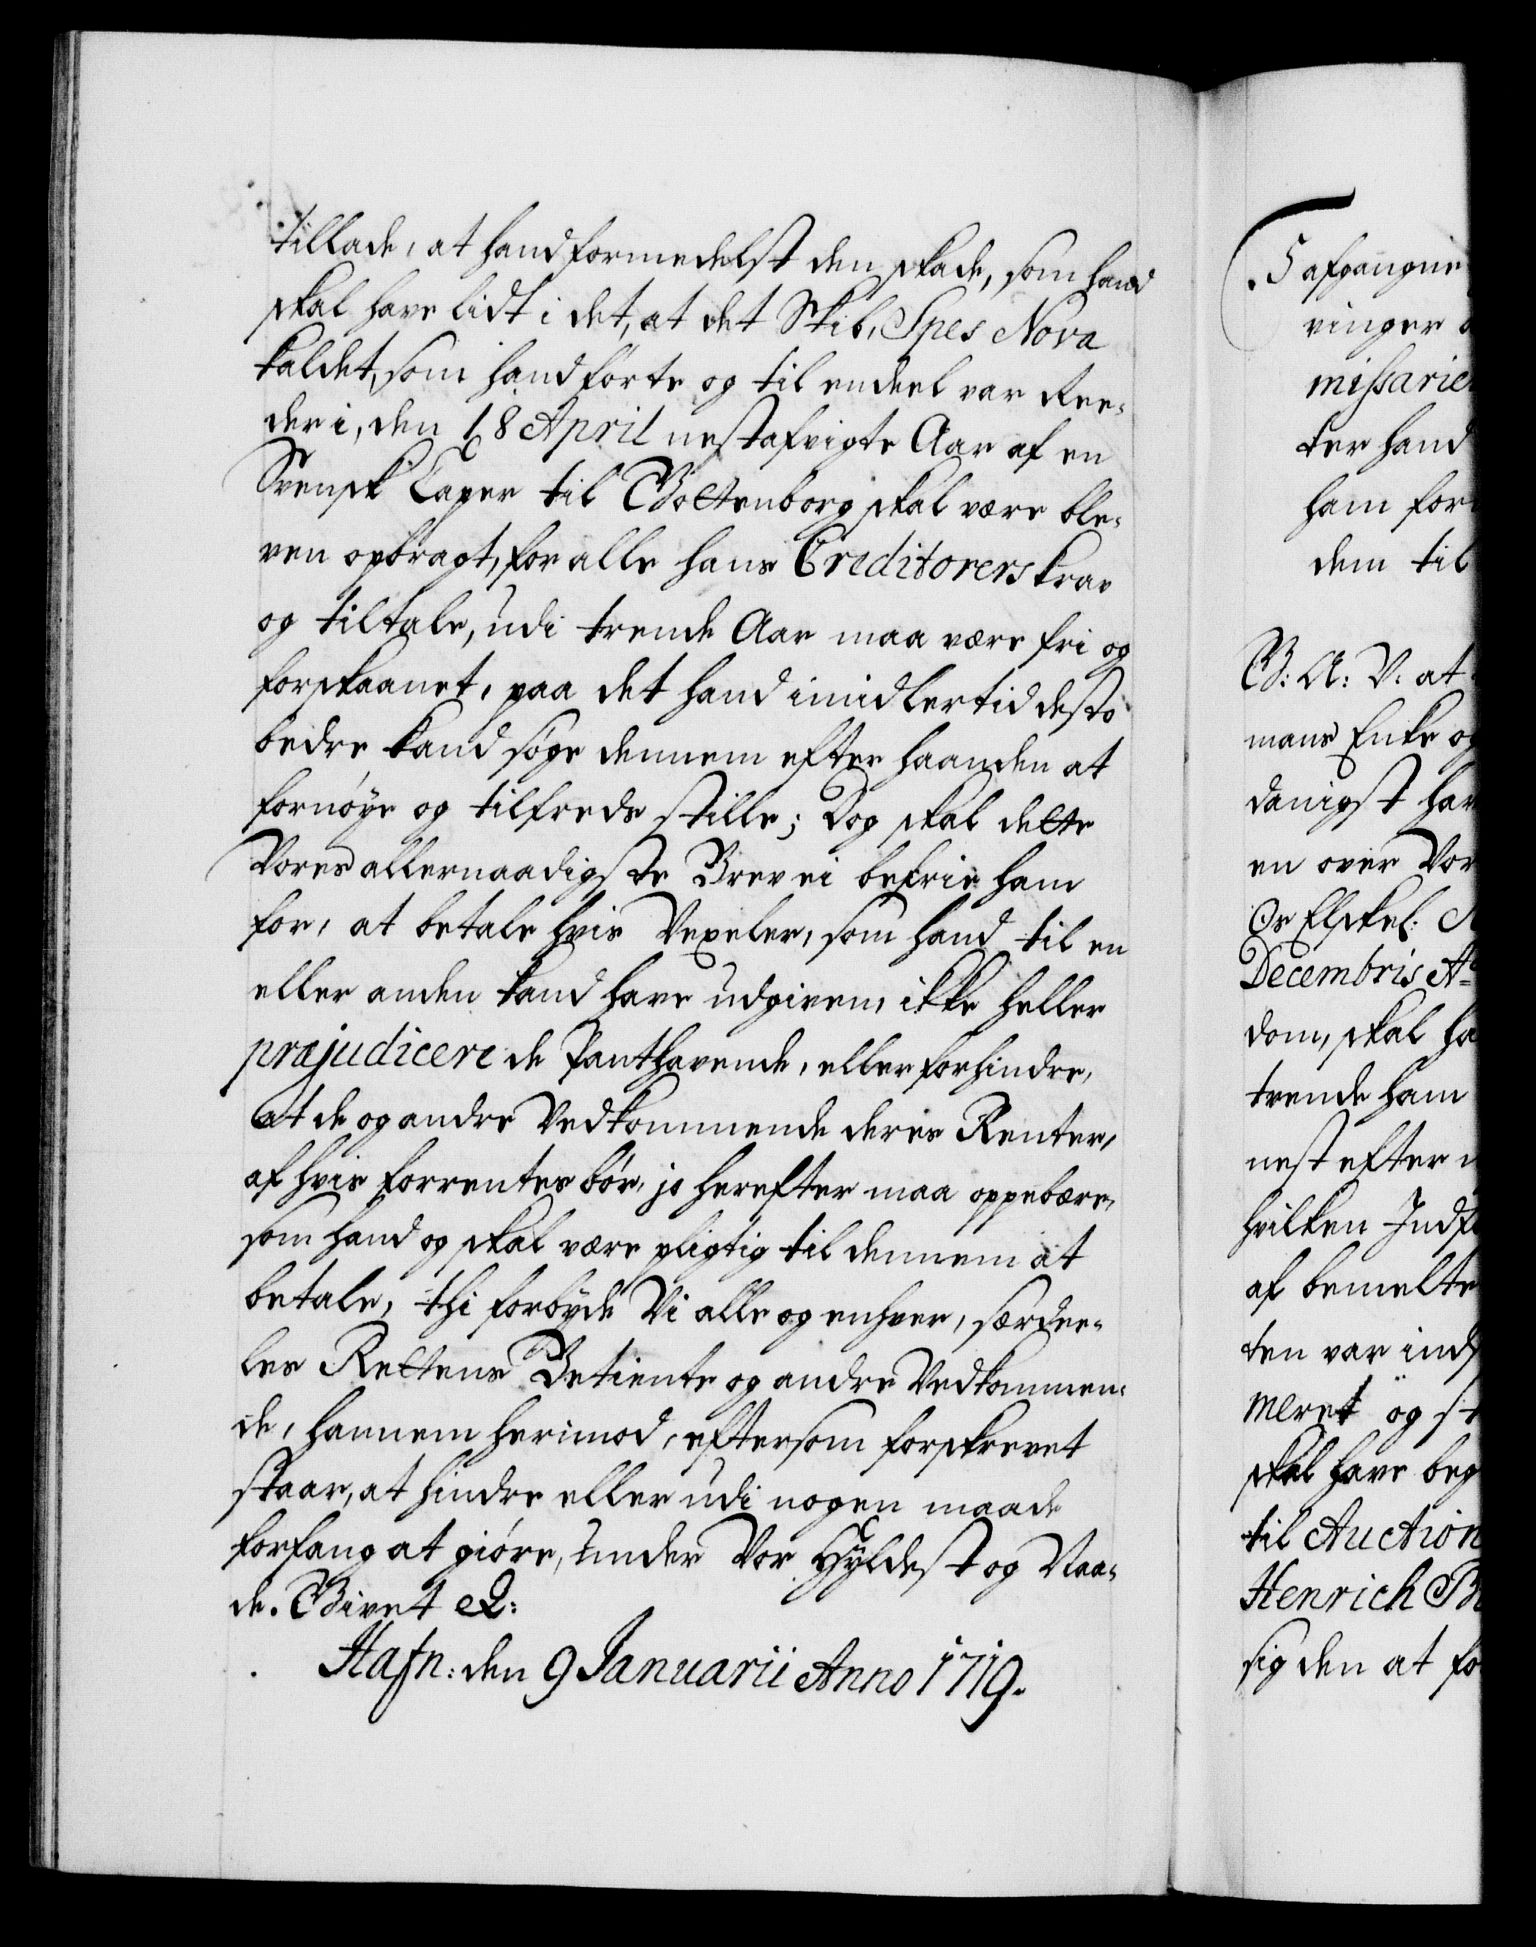 tillade, at hand formedelst den skade, som hand
skal have lidt i det, at det Skib, Spes Nova
kaldet, som hand førte og til endeel var Ree-
der i, den 18 April nestafvigte Aar af en
Svensk Caper til Gottenborg skal være ble-
ven opbragt, for alle hans Creditorers krav
og tiltale, udi trende Aar maa være fri og
forskaanet, paa det hand imidlertid desto
bedre kand søge dennem efter haanden at
fornøye og tilfreds stille; Dog skal dette
Vores allernaadigste Brev ei befrie ham
for, at betale hvis Vexeler, som hand til en
eller anden kand have udgiven, ikke heller
præjudicere de Panthavende, eller forhindre,
at de og andre Vedkommende deris Renter,
af hvis forrentes bør, jo herefter maa oppebære,
som hand og skal være pligtig til dennem at
betale, thi forbyde Vi alle og enhver, særdee-
les Rettens Betiente og andre Vedkommen-
de, hannem herimod, eftersom forskrevet
staar, at hindre eller udi nogen maade
forfang at giøre, under Vor Hyldest og Naa-
de. Givet &:
Hafn: den 9 Januarii Anno 1719.
5 afgangne
vinger
missarie
ter hand
ham for
dem til
G: A: V: at
mans Enke og
danigst har
en over Vor
Os Elskel:
Decembris Aº
dom, skal ha
trende ham
nest efter
hvilken Indf
af bemelte
ten var ind
meret og st
skal have beg
til Auction
Henrich
sig den at fo